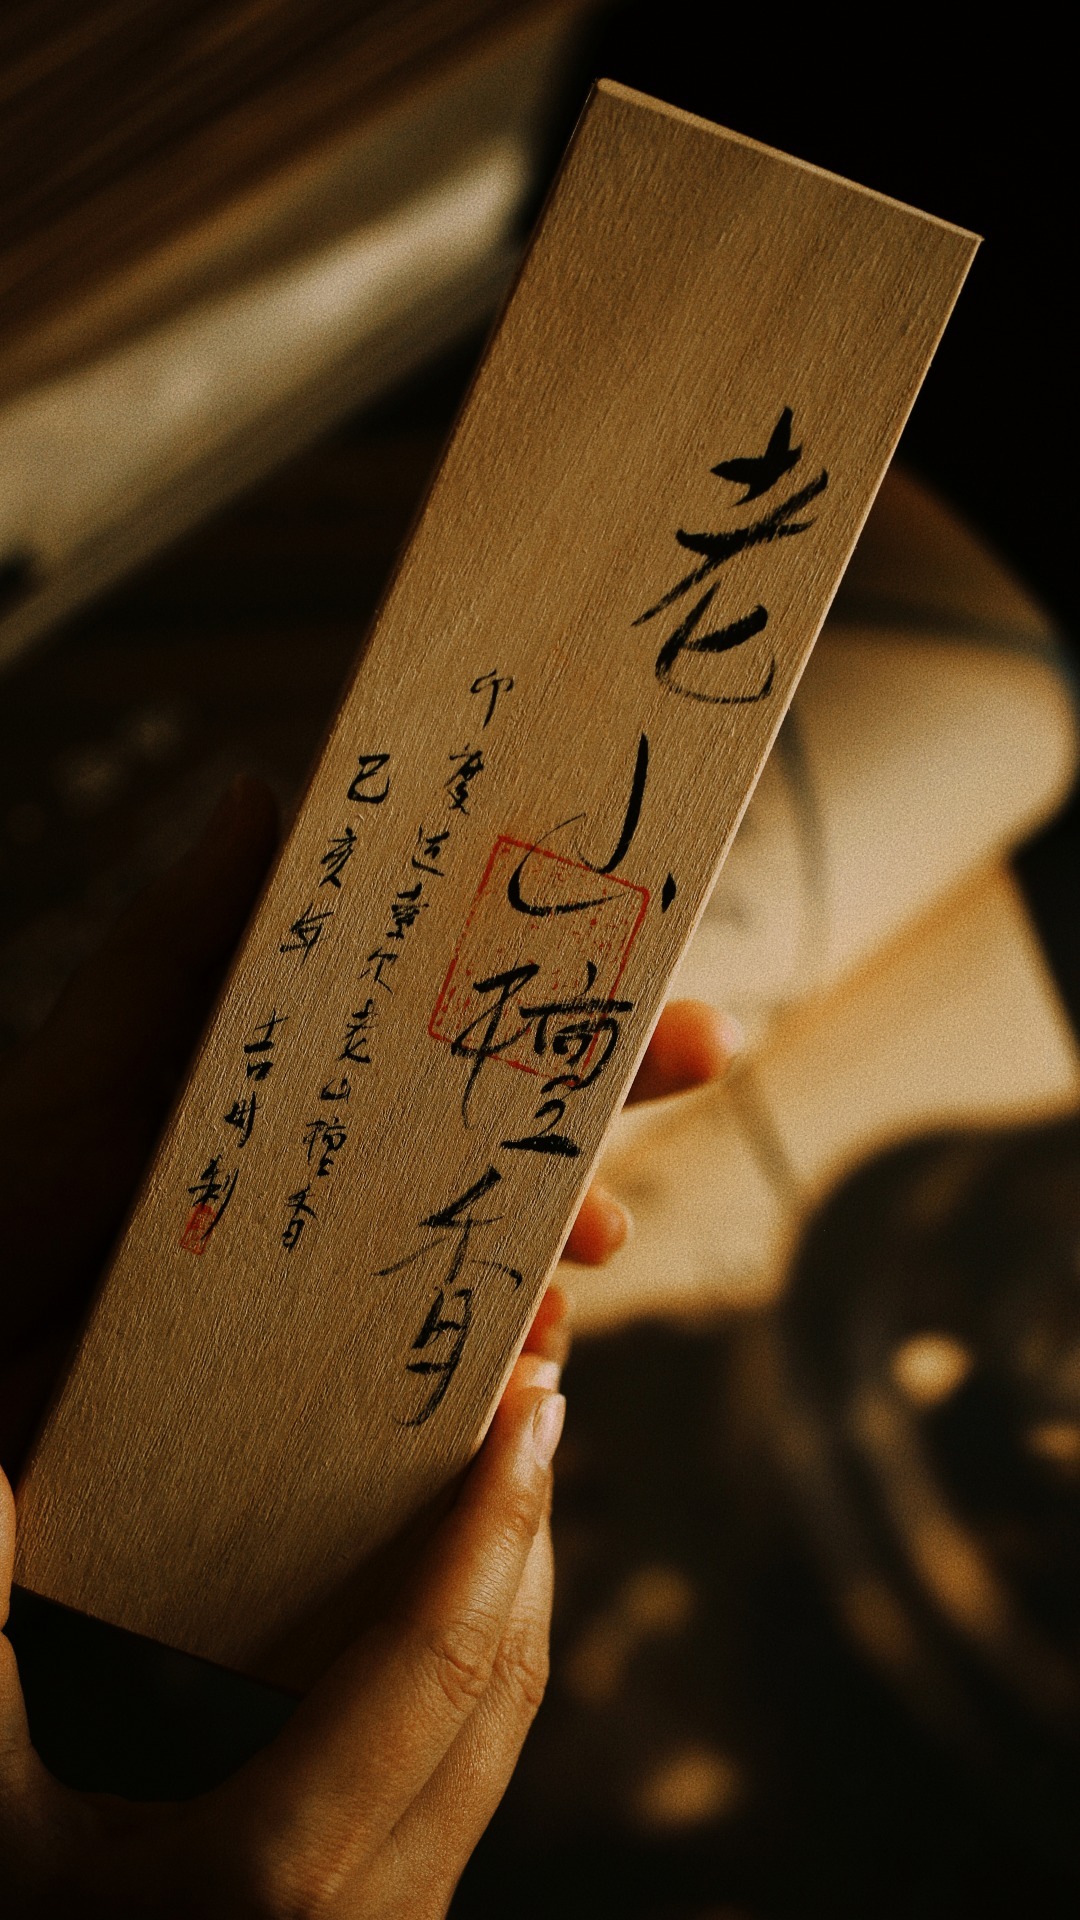 老山檀香
印度迈索尔老山檀香
己亥年 吉州制